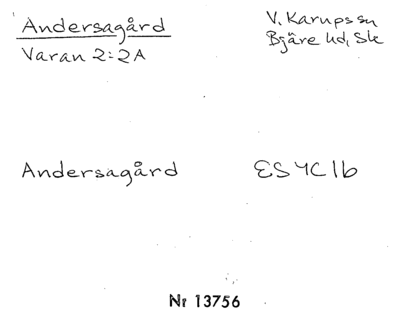 Andersagård
Varan 2:2A
V. Karups sn
Bjäre hd, Sk
Andersagård
ES 4C1b
Nr 13756